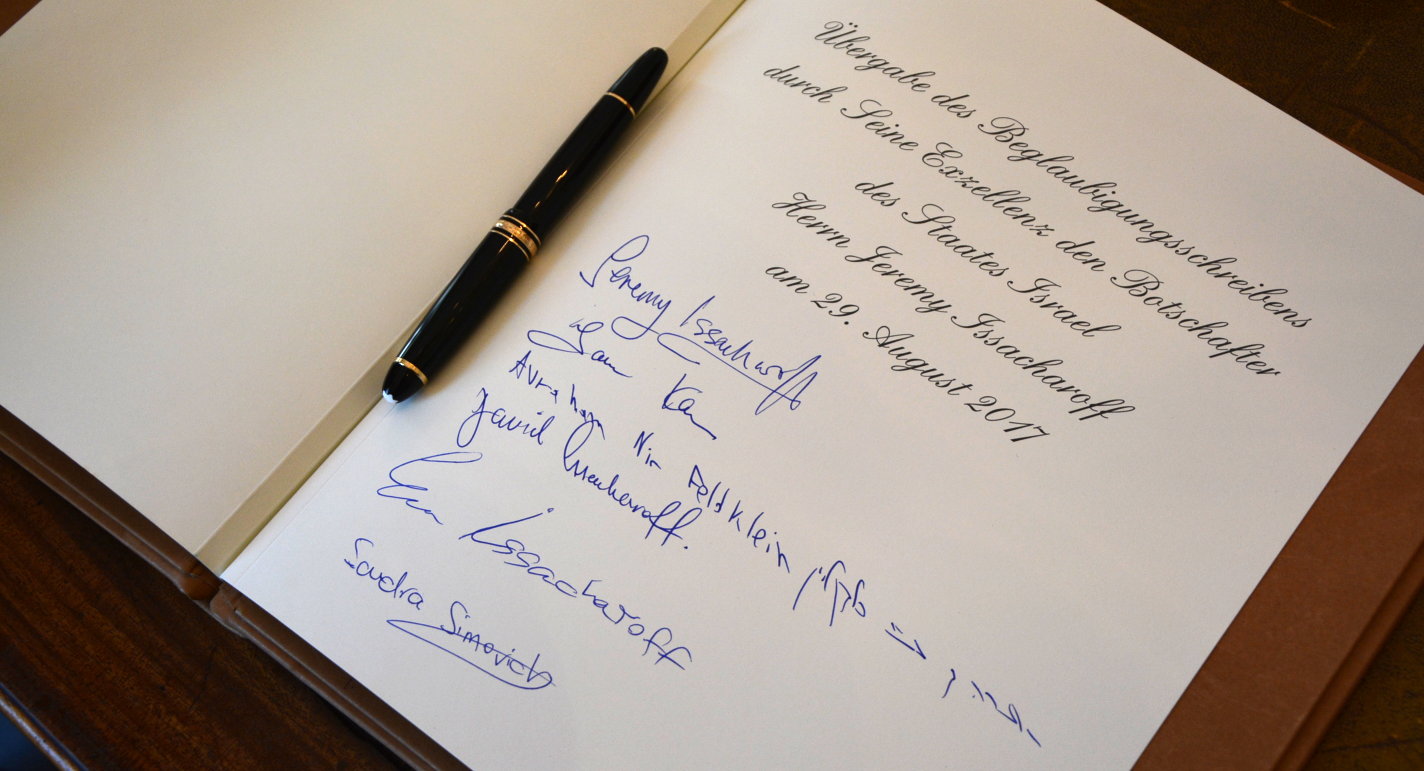 Übergabe des Beglaubigungsschreibens
durch Seine Exzellenz den Botschafter
des Staates Israel
Herrn Jeremy Issacharoff
am 29. August 2017
Jeremy Issacharoff
Avraham Nir Feldklein
David Issacharoff.
Issacharoff
Sandra Simovich